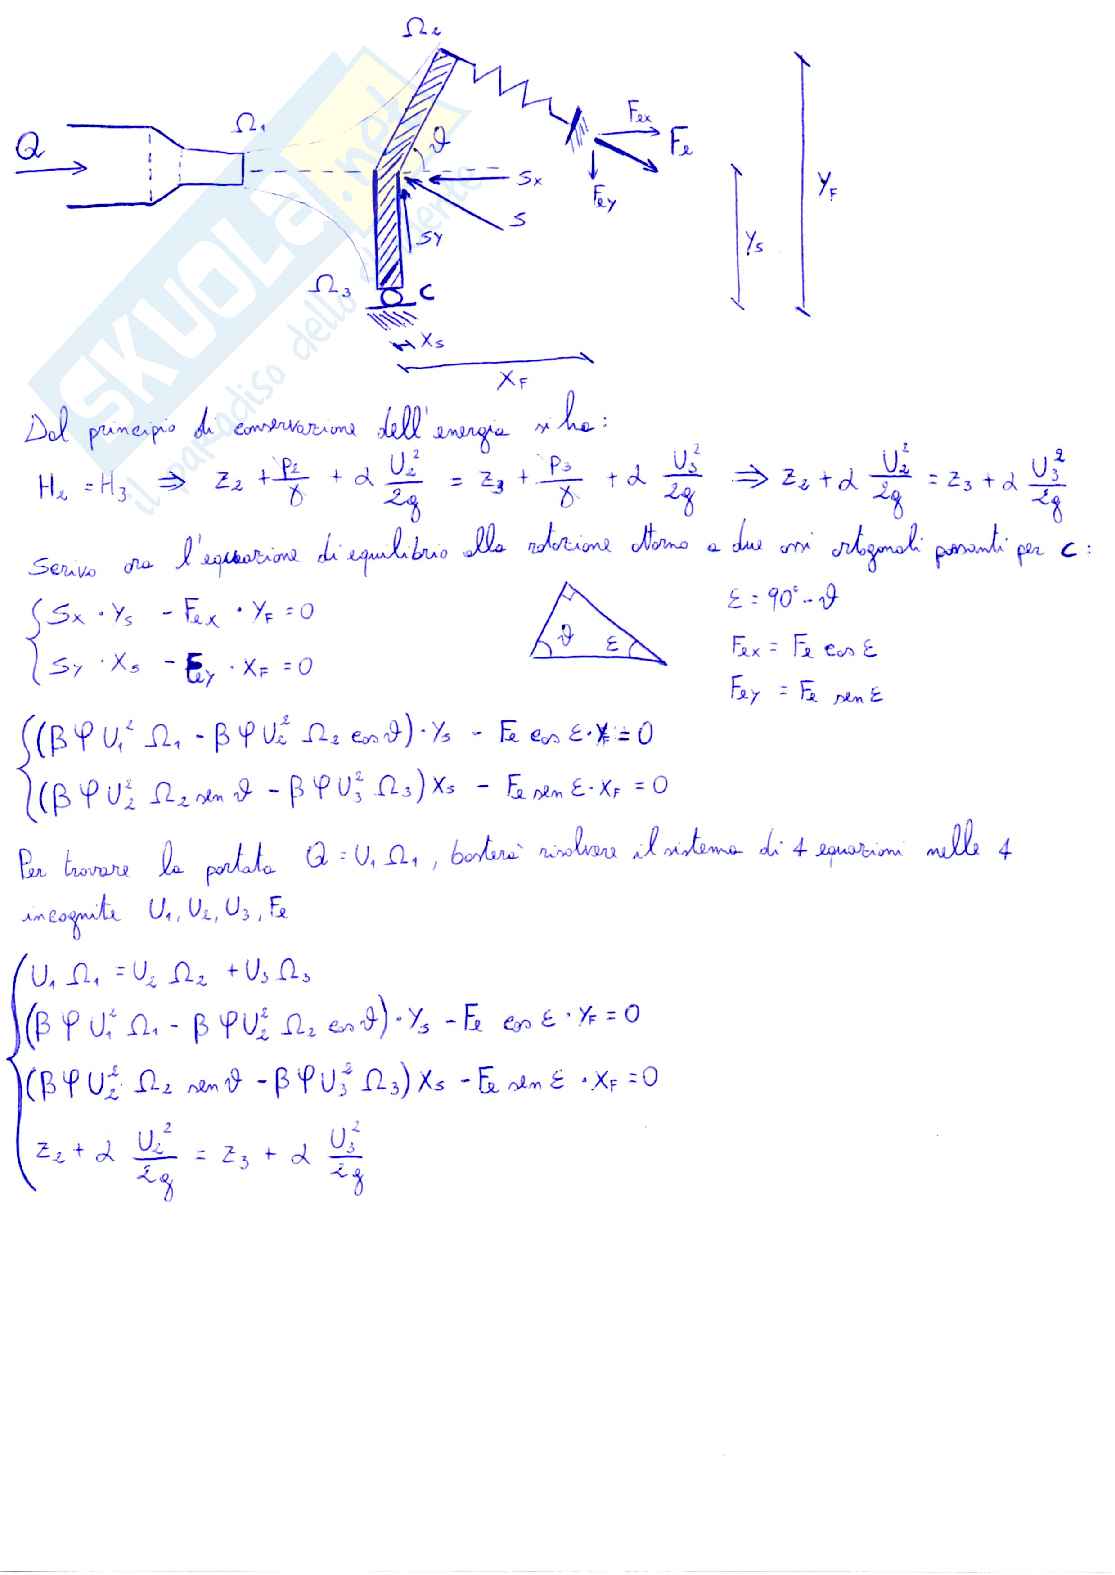 Ω₂
Ω₁
Q
ϑ
Fex
Fe
Fey
Sx
S
Sy
Ys
YF
Ω₃
C
Xs
XF
SKUOLA.net
il paradiso dello studente
Dal principio di conservazione dell'energia si ha:
H₂ = H₃ ⇒ Z₂ + P₂/γ + α U₂²/2g = Z₃ + P₃/γ + α U₃²/2g ⇒ Z₂ + α U₂²/2g = Z₃ + α U₃²/2g
Scrivo ora l'equazione di equilibrio alla rotazione attorno a due assi ortogonali passanti per C:
{ Sx · Ys - Fex · YF = 0
Sy · Xs - Fey · XF = 0
ϑ ε
ε = 90° - ϑ
Fex = Fe cos ε
Fey = Fe sen ε
{ (β φ U₁² Ω₁ - β φ U₂² Ω₂ cos ϑ) · Ys - Fe cos ε · YF = 0
(β φ U₂² Ω₂ sen ϑ - β φ U₃² Ω₃) Xs - Fe sen ε · XF = 0
Per trovare la portata Q = U₁ Ω₁, basterà risolvere il sistema di 4 equazioni nelle 4
incognite U₁, U₂, U₃, Fe
{ U₁ Ω₁ = U₂ Ω₂ + U₃ Ω₃
(β φ U₁² Ω₁ - β φ U₂² Ω₂ cos ϑ) · Ys - Fe cos ε · YF = 0
(β φ U₂² Ω₂ sen ϑ - β φ U₃² Ω₃) Xs - Fe sen ε · XF = 0
Z₂ + α U₂²/2g = Z₃ + α U₃²/2g